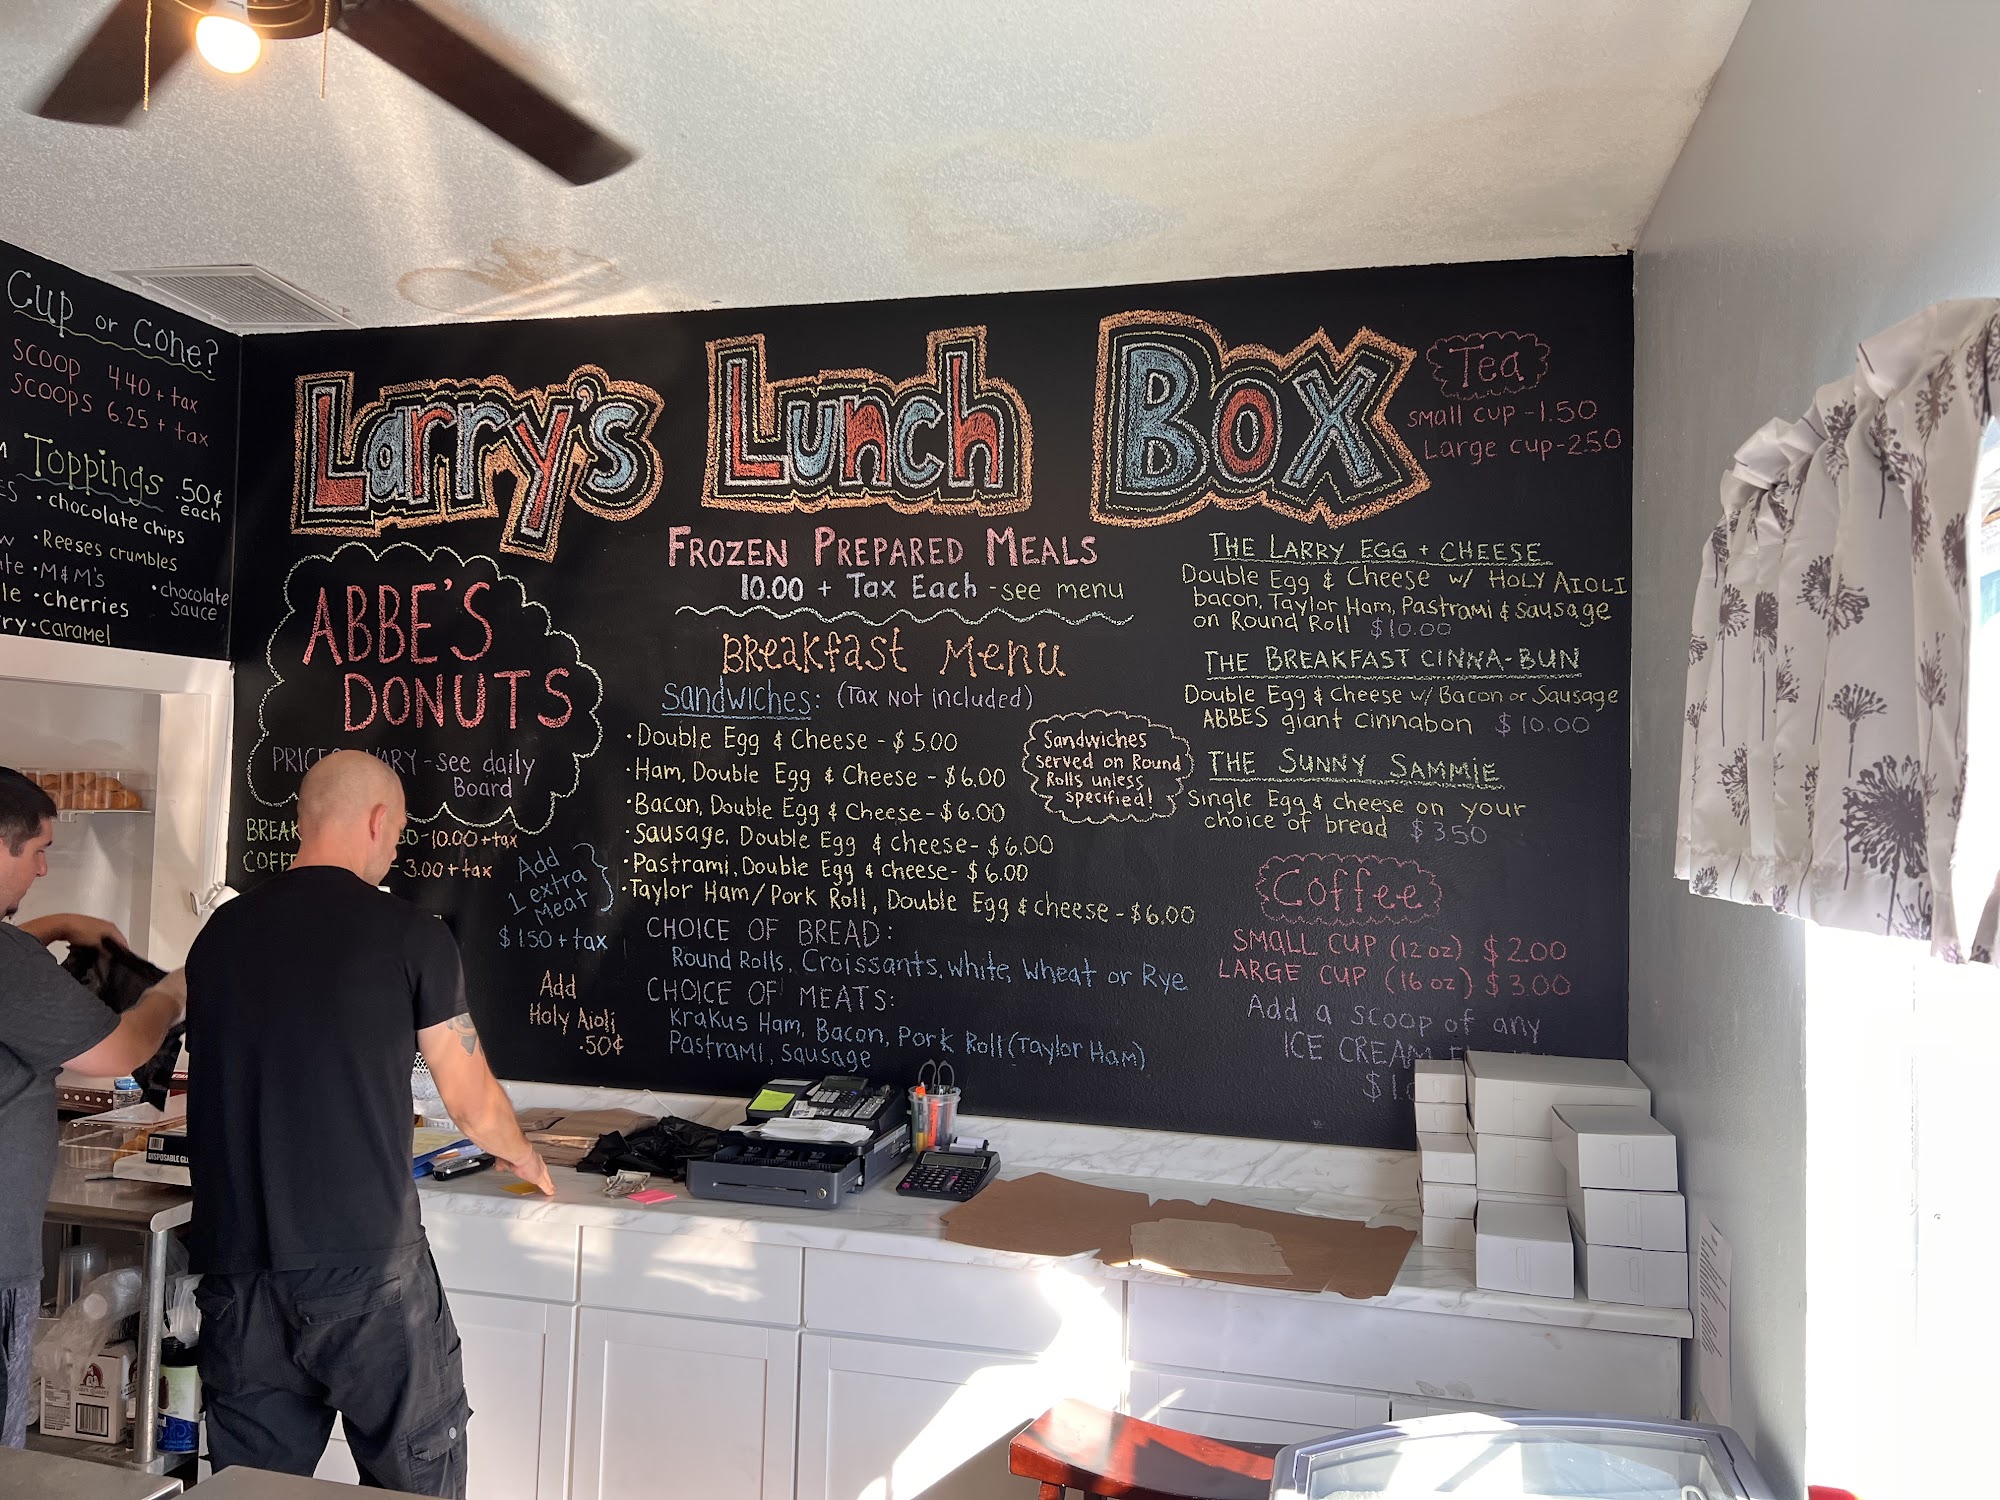 Cup or Cone?
SCOOP 4.40 + tax
SCOOPS 6.25 + tax
Toppings .50¢ each
• chocolate chips
• Reeses crumbles
• M&M's
• chocolate sauce
• cherries
• caramel
Larry's Lunch Box
ABBE'S
DONUTS
VARY - see daily
Board
10.00 + tax
3.00 + tax
Add
1 extra
Meat
$1.50 + tax
Add
Holy Aioli
.50¢
FROZEN PREPARED MEALS
10.00 + Tax Each - see menu
Breakfast Menu
Sandwiches: (Tax Not included)
• Double Egg & Cheese - $5.00
• Ham, Double Egg & Cheese - $6.00
• Bacon, Double Egg & Cheese - $6.00
• Sausage, Double Egg & cheese - $6.00
• Pastrami, Double Egg & cheese - $6.00
• Taylor Ham/Pork Roll, Double Egg & cheese - $6.00
Sandwiches
served on Round
Rolls unless
specified!
CHOICE OF BREAD:
Round Rolls, Croissants, white, Wheat or Rye
CHOICE OF MEATS:
Krakus Ham, Bacon, Pork Roll (Taylor Ham)
Pastrami, Sausage
Tea
Small cup - 1.50
Large cup - 2.50
THE LARRY EGG + CHEESE
Double Egg & Cheese w/ HOLY AIOLI
bacon, Taylor Ham, Pastrami & Sausage
on Round Roll $10.00
THE BREAKFAST CINNA-BUN
Double Egg & Cheese w/ Bacon or Sausage
ABBES giant cinnabon $10.00
THE SUNNY SAMMIE
Single Egg & cheese on your
choice of bread $3.50
Coffee
SMALL CUP (12 oz) $2.00
LARGE CUP (16 oz) $3.00
Add a scoop of any
ICE CREAM
DISPOSABLE